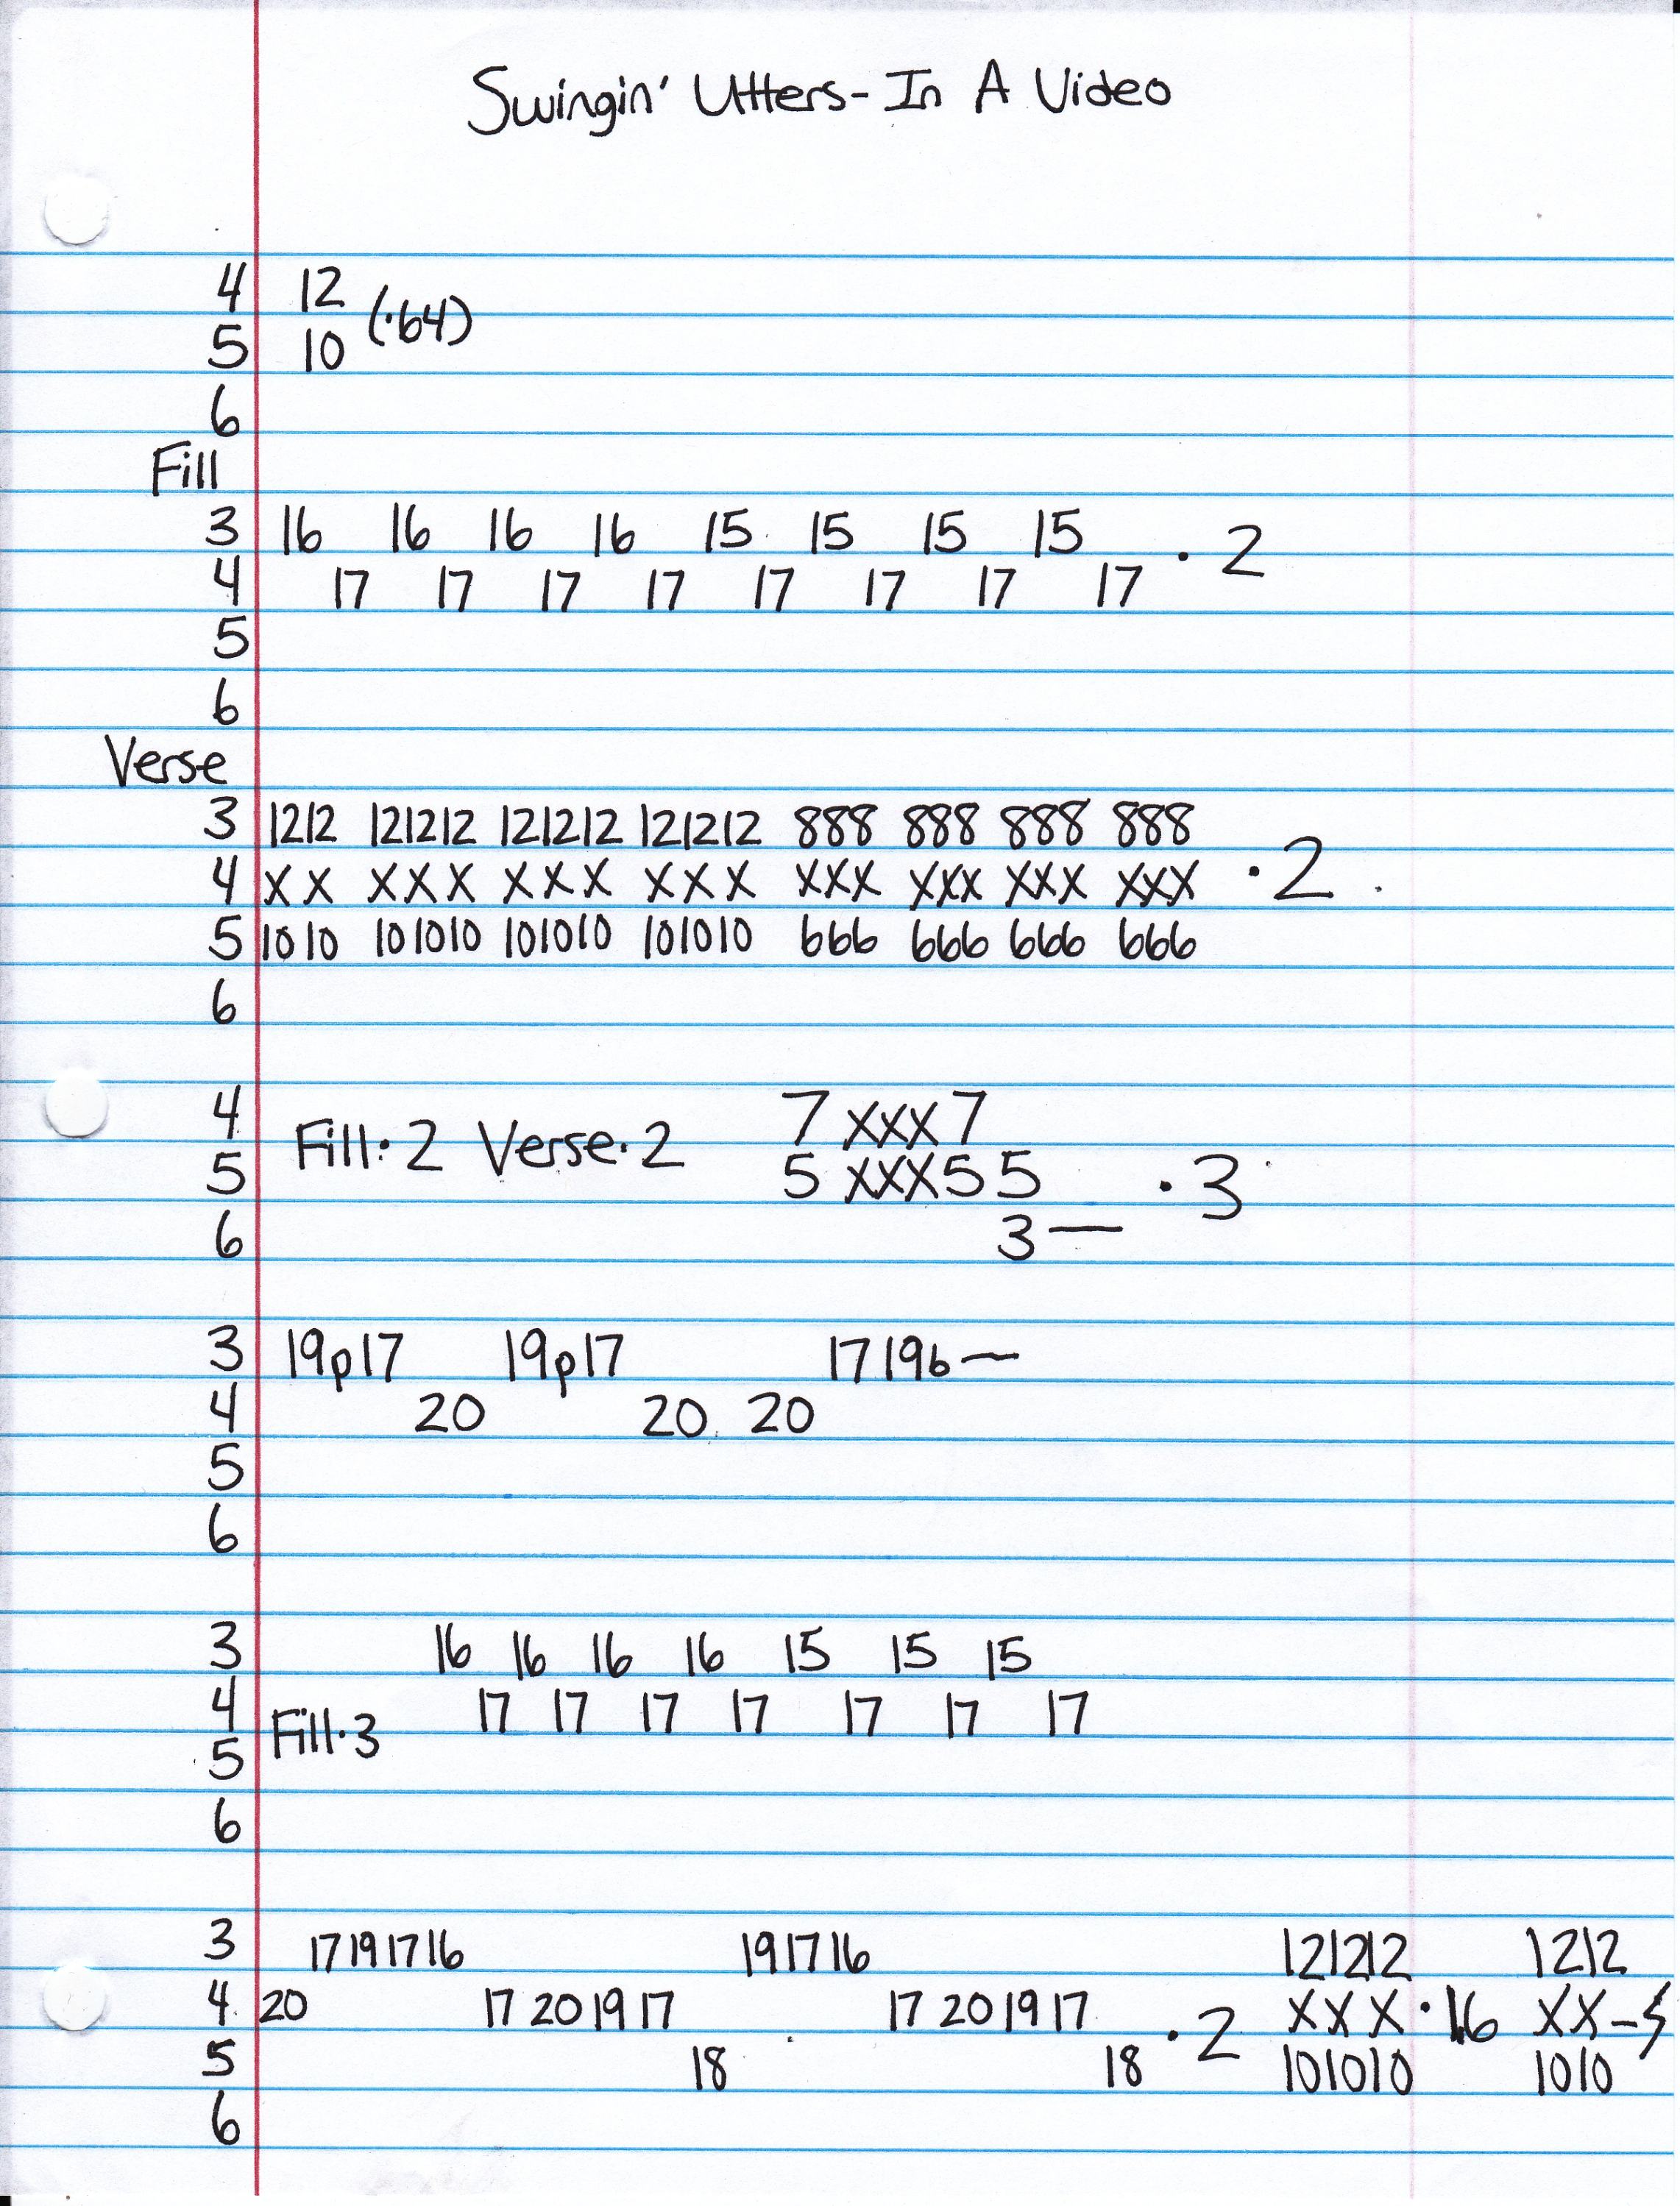 Swingin' Utters - In A Video
4 12
(·64)
5 10
6
Fill
3 16 16 16 16 15 15 15 15
· 2
4 17 17 17 17 17 17 17 17
5
6
Verse
3 1212 121212 121212 121212 888 888 888 888
4 XX XXX XXX XXX XXX XXX XXX XXX · 2
5 1010 101010 101010 101010 666 666 666 666
6
4 7 xxx 7
Fill·2 Verse·2
5 5 xxx 5 5 · 3
6 3 —
3 19p17 19p17 17 19b —
4 20 20 20
5
6
3 16 16 16 16 15 15 15
4 17 17 17 17 17 17 17
Fill·3
5
6
3 17 19 17 16 19 17 16 121212 1212
4 20 17 20 19 17 17 20 19 17 · 2 XXX · 16 XX –
5 18 18 101010 1010
6